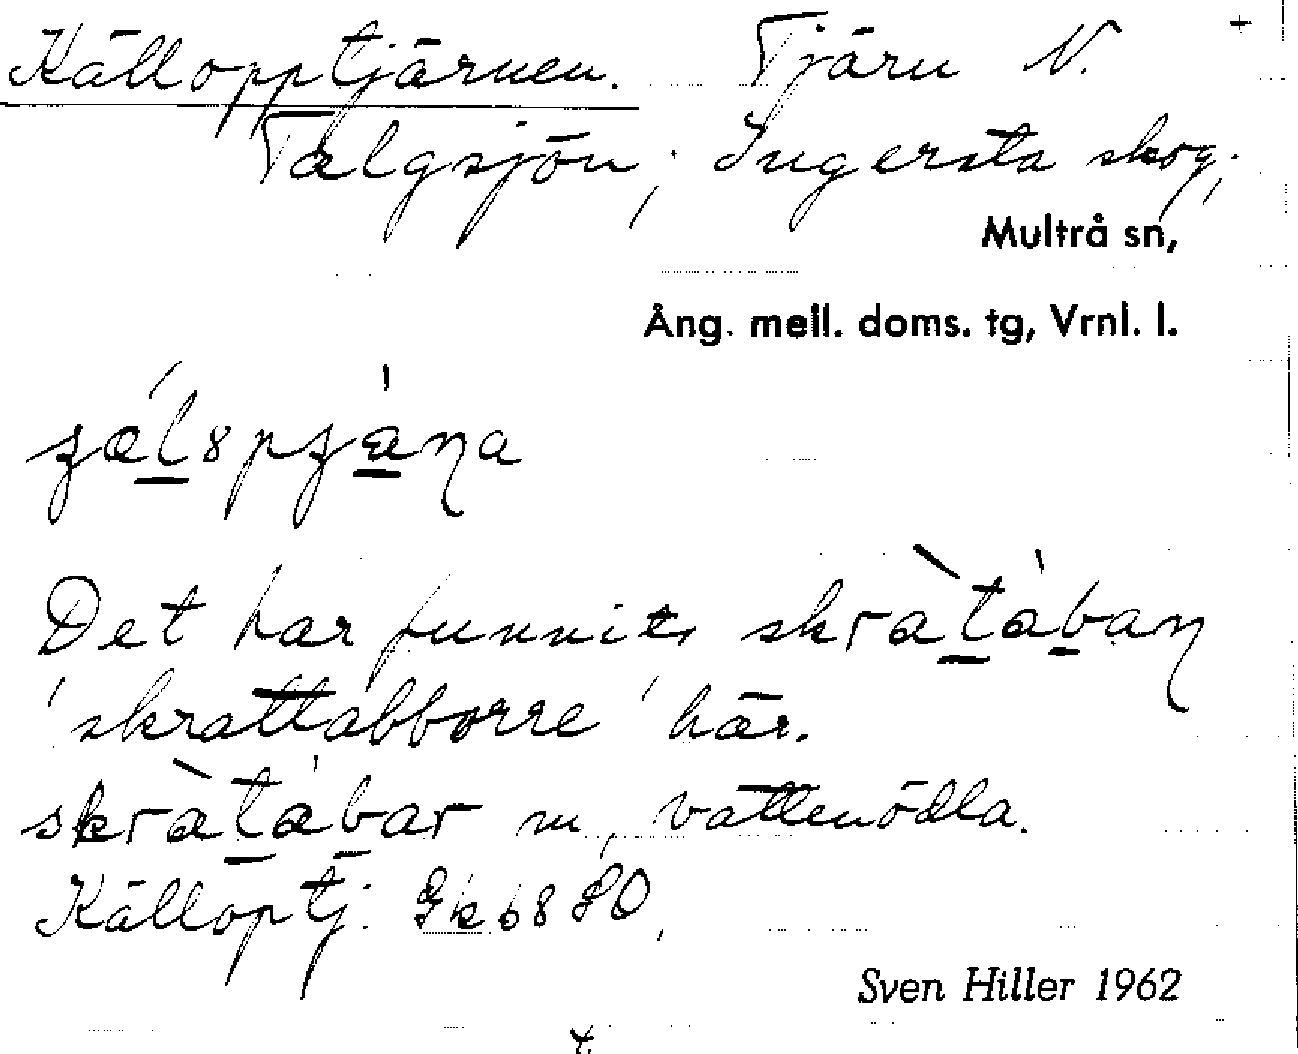 Källopptjärnen. Tjärn N. +
Talgsjön; Ingersta skog;
Multrå sn,
Ång. mell. doms. tg, Vrnl. l.
Det har funnits skràtában
'skrattabborre' här.
skràtábar m, vattenödla.
Källoptj. Gk 68 SO,
Sven Hiller 1962
t